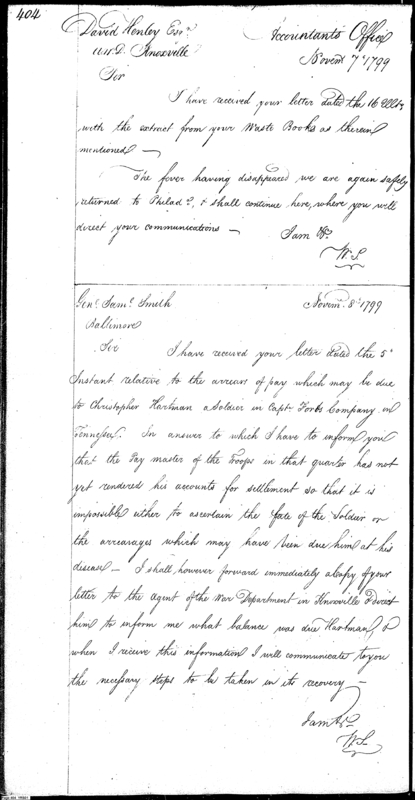 404
David Henley Esqr
Accountants Office
A.W.D. Knoxville
Novemr 7th 1799
Sir
I have received your letter dated the 16 Ulto
with the extract from your Waste Books as therein
mentioned —
The fever having disappeared we are again safely
returned to Philada, & shall continue here, where you will
direct your communications —
I am &c.
W. S.
Genl. Saml. Smith
Novemr. 8th 1799
Baltimore
Sir
I have received your letter dated the 5th
Instant relative to the arrears of pay which may be due
to Christopher Hartman a Soldier in Capt. Company in
Tennessee. In answer to which I have to inform you
that the Pay master of the Troops in that quarter has not
yet rendered his accounts for settlement so that it is
impossible either to ascertain the fate of the Soldier or
the arrearages which may have been due him at his
decease — I shall however forward immediately a Copy of your
letter to the agent of the War Department in Knoxville & direct
him to inform me what balance was due Hartman, &
when I receive this information I will communicate to you
the necessary steps to be taken in its recovery —
I am &c.
W. S.